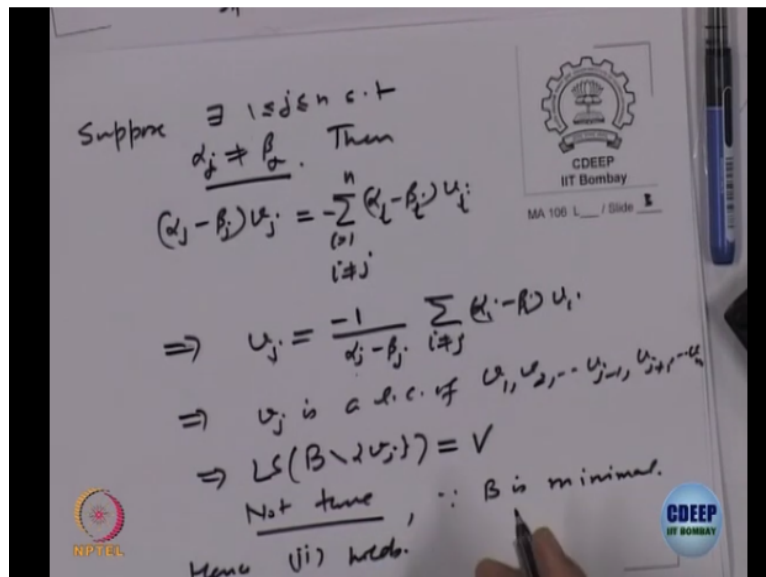 Suppose ∃ 1≤j≤n s.t
αj ≠ βj. Then
(αj - βj)vj = -∑ⁿ i=1 i≠j (αi - βi) vi
⇒ vj = -1/(αj - βj) ∑ i≠j (αi - βi) vi.
⇒ vj is a l.c. of v1, v2, ... vj-1, vj+1, ... vn
⇒ LS(B \ {vj}) = V
Not true, ∵ B is minimal.
Hence (ii) holds.
CDEEP
IIT Bombay
MA 106 L___ / Slide 8
NPTEL
CDEEP
IIT BOMBAY